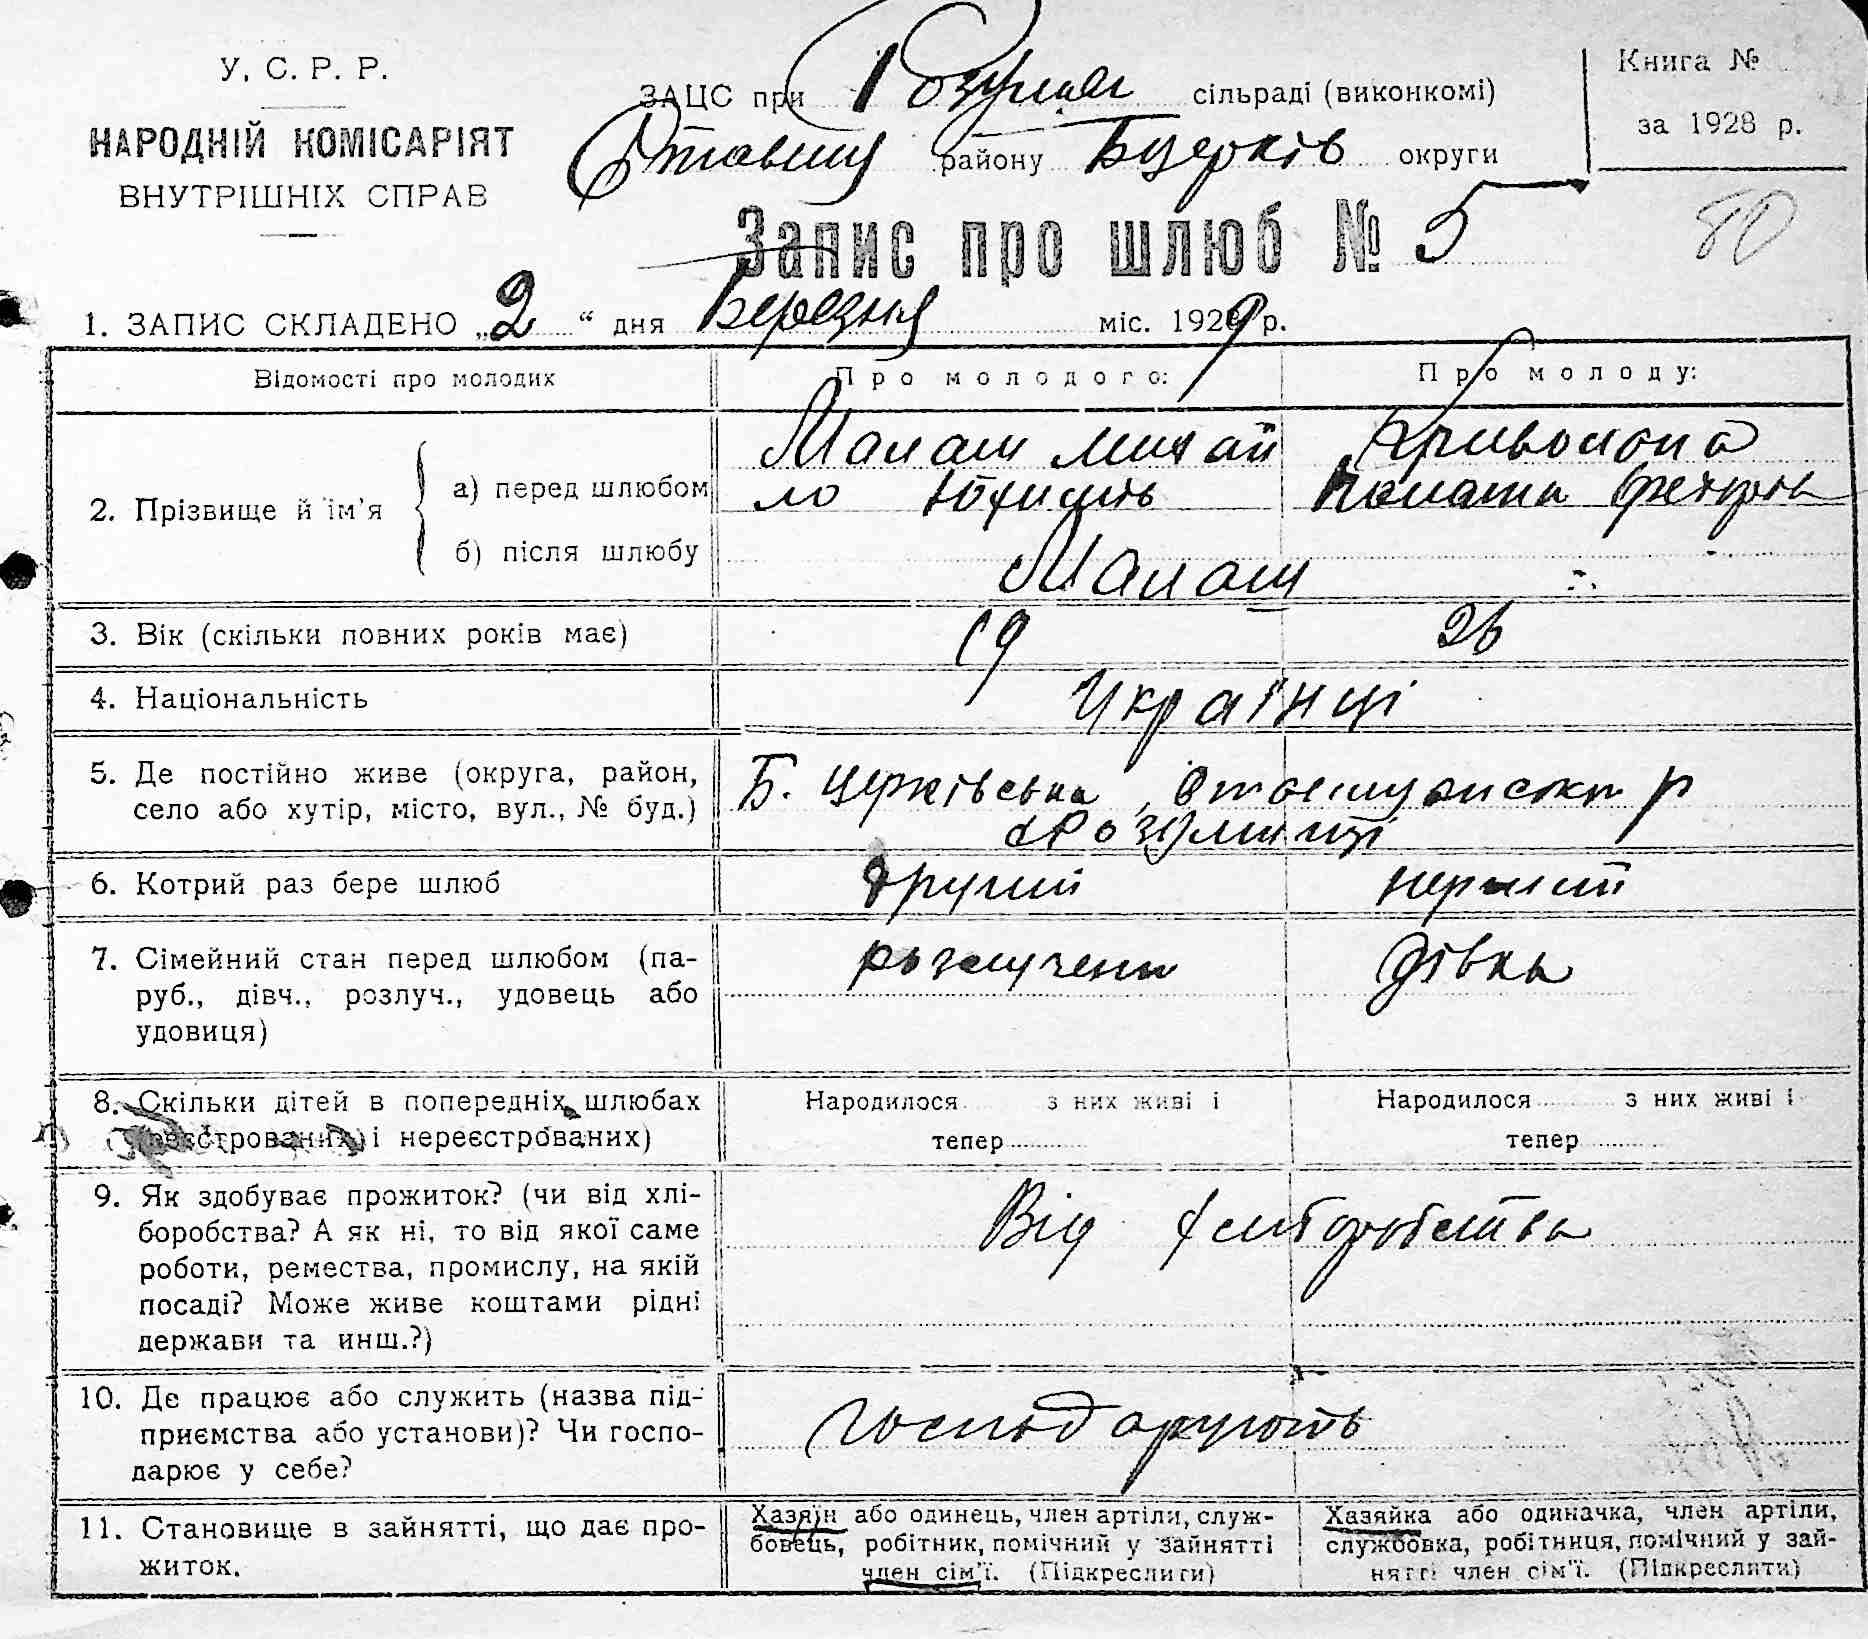 У. С. Р. Р.
НАРОДНІЙ КОМІСАРІЯТ
ВНУТРІШНІХ СПРАВ
ЗАЦС при Розумн сільраді (виконкомі)
Ставищ району Бцерків округи
Книга №
за 1928 р.
80
Запис про шлюб № 5
1. ЗАПИС СКЛАДЕНО „2“ дня Березня міс. 1929 р.
Відомості про молодих
Про молодого:
Про молоду:
2. Прізвище й ім'я
а) перед шлюбом
Малаш Михай
ло Юхимів
Криволапа
Феодорів
б) після шлюбу
Малаш
3. Вік (скільки повних років має)
19
26
4. Національність
Українці
5. Де постійно живе (округа, район,
село або хутір, місто, вул., № буд.)
Б. Церківська, р
с Розумниці
6. Котрий раз бере шлюб
другий
перший
7. Сімейний стан перед шлюбом (па-
руб., дівч., розлуч., удовець або
удовиця)
розлучени
дівка
8. Скільки дітей в попередніх шлюбах
(реєстрованих і нереєстрованих)
Народилося з них живі і
тепер
Народилося з них живі і
тепер
9. Як здобуває прожиток? (чи від хлі-
боробства? А як ні, то від якої саме
роботи, ремества, промислу, на якій
посаді? Може живе коштами рідні
держави та инш.?)
Від хліборобства
10. Де працює або служить (назва під-
приємства або установи)? Чи госпо-
дарює у себе?
господарують
11. Становище в зайнятті, що дає про-
житок.
Хазяїн або одинець, член артіли, служ-
бовець, робітник, помічний у зайнятті
член сім'ї. (Підкреслити)
Хазяйка або одиначка, член артіли,
службовка, робітниця, помічний у зай-
нятті член сім'ї. (Підкреслити)